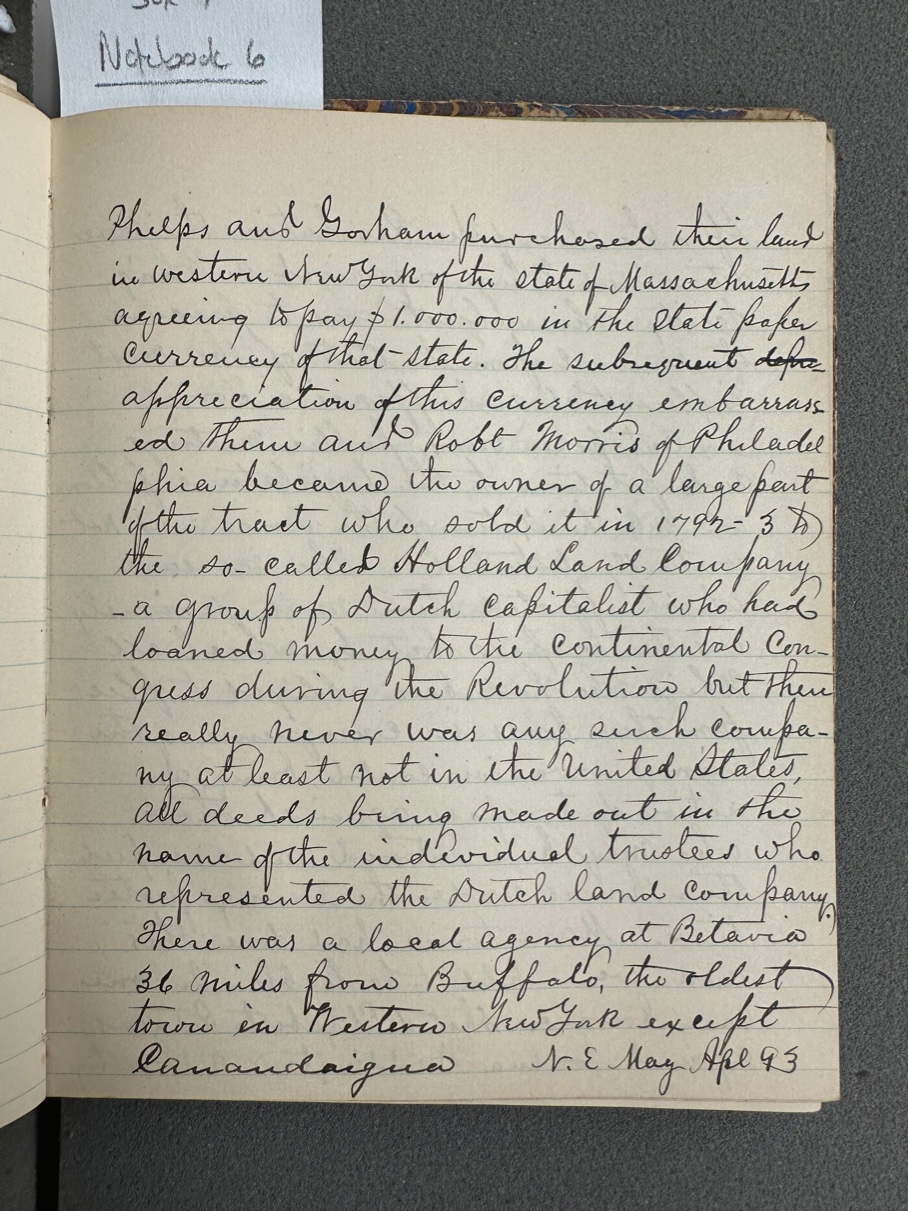 Notebook 6
Phelps and Gorham purchased their land
in western New York of the state of Massachusetts
agreeing to pay $1.000.000 in the State paper
currency of that state. The subsequent depre=
appreciation of this currency embarrass
ed them and Robt Morris of Philadel
phia became the owner of a large part
of the tract who sold it in 1792-3 to
the so-called Holland Land Company
-a group of Dutch capitalist who had
loaned money to the continental Con-
gress during the Revolution but there
really never was any such compa-
ny at least not in the United States,
all deeds being made out in the
name of the individual trustees who
represented the Dutch land company.
There was a local agency at Betavia
36 miles from Buffalo, the oldest
town in Western New York except
Canandaigua N. E May Apl 93